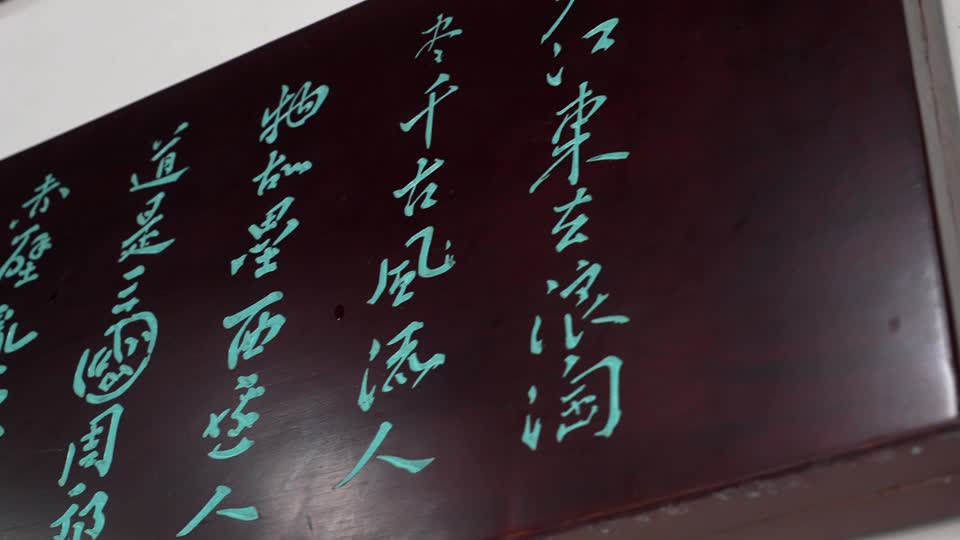 江東去浪淘
尽千古風流人
物故壘西邊人
道是三國周郎
赤壁